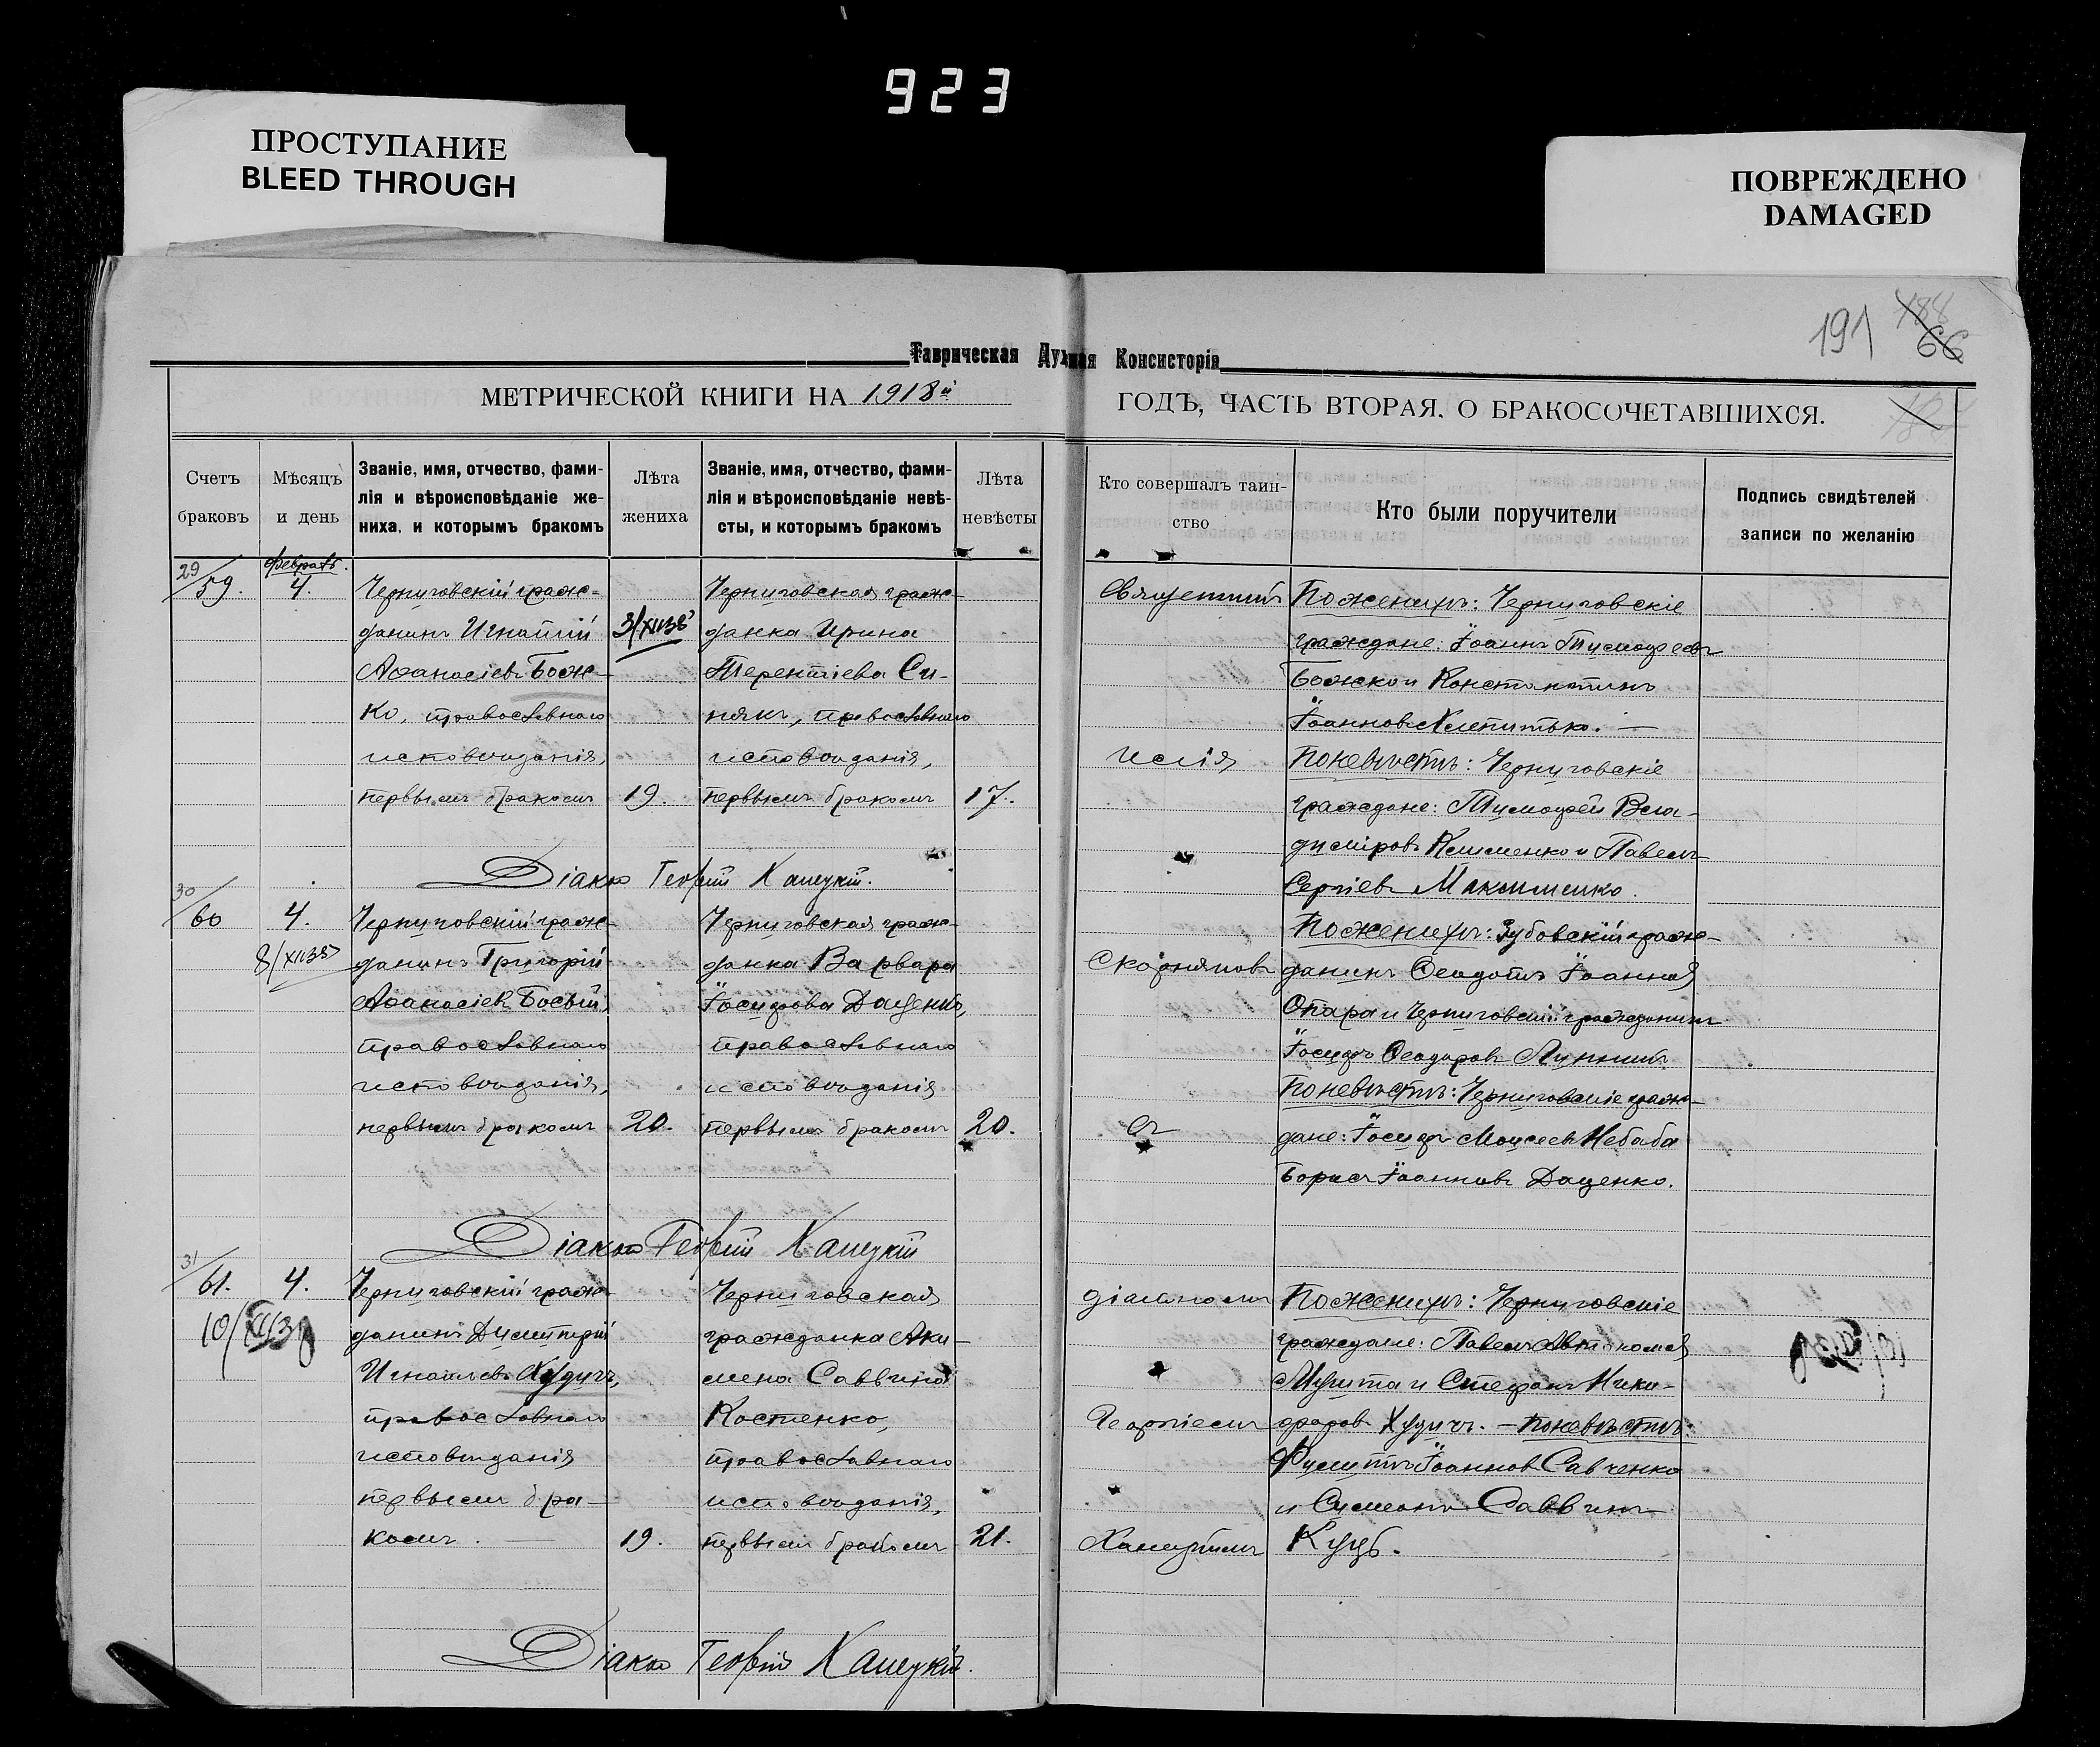 923
ПРОСТУПАНИЕ
BLEED THROUGH
ПОВРЕЖДЕНО
DAMAGED
191
188
66
Таврическая Духная Консисторія
МЕТРИЧЕСКОЙ КНИГИ НА 1918й
ГОДЪ, ЧАСТЬ ВТОРАЯ. О БРАКОСОЧЕТАВШИХСЯ.
Счетъ
браковъ
Мѣсяцъ
и день
Званіе, имя, отчество, фами-
лія и вѣроисповѣданіе же-
ниха, и которымъ бракомъ
Лѣта
жениха
Званіе, имя, отчество, фами-
лія и вѣроисповѣданіе невѣ-
сты, и которымъ бракомъ
Лѣта
невѣсты
Кто совершалъ таин-
ство
Кто были поручители
Подпись свидѣтелей
записи по желанію
29/59.
4.
Черниговскій граж-
данинъ Игнатій
Аѳанасіевъ Бож-
ко, православнаго
исповѣданія,
первымъ бракомъ
3/XII38
19.
Черниговская граж-
данка Ирина
Терентіева Си-
някъ, православнаго
исповѣданія,
первымъ бракомъ
17.
Священникъ
Илія
По женихѣ: Черниговскіе
граждане: Іоаннъ Тимоѳеевъ
Божко и Константинъ
Іоанновъ
По невѣстѣ: Черниговскіе
граждане: Тимоѳей Вла-
диміровъ Клименко и Павелъ
Сергіевъ Максименко.
Діаконъ Георгій Ханецкій.
30/60
4.
8/XII38
Черниговскій граж-
данинъ Григорій
Аѳанасіевъ Босый,
православнаго
исповѣданія,
первымъ бракомъ
20.
Черниговская граж-
данка Варвара
Іосифова Даценко,
православнаго
исповѣданія
первымъ бракомъ
20.
Скорняковъ
съ
По женихѣ: Зубовскій граж-
данинъ Ѳеодотъ Іоанновъ
Опара и Черниговскій гражданинъ
Іосифъ Ѳеодоровъ
По невѣстѣ: Черниговскіе граж-
дане: Іосифъ Моисеевъ Небаба
Борисъ Іоанновъ Даценко.
Діаконъ Георгій Ханецкій
31/61.
4.
10/XII38
Черниговскій граж-
данинъ Димитрій
Игнатіевъ Худичъ,
православнаго
исповѣданія
первымъ бра-
комъ.
19.
Черниговская
гражданка Аки-
лина Саввина
Костенко,
православнаго
исповѣданія,
первымъ бракомъ
21.
діакономъ
Георгіемъ
Ханецкимъ
По женихѣ: Черниговскіе
граждане: Павелъ Автономовъ
и Стефанъ Ники-
форовъ Худичъ. — По невѣстѣ:
Филиппъ Іоанновъ Савченко
и Симеонъ Саввинъ
Куцъ.
Діаконъ Георгій Ханецкій.